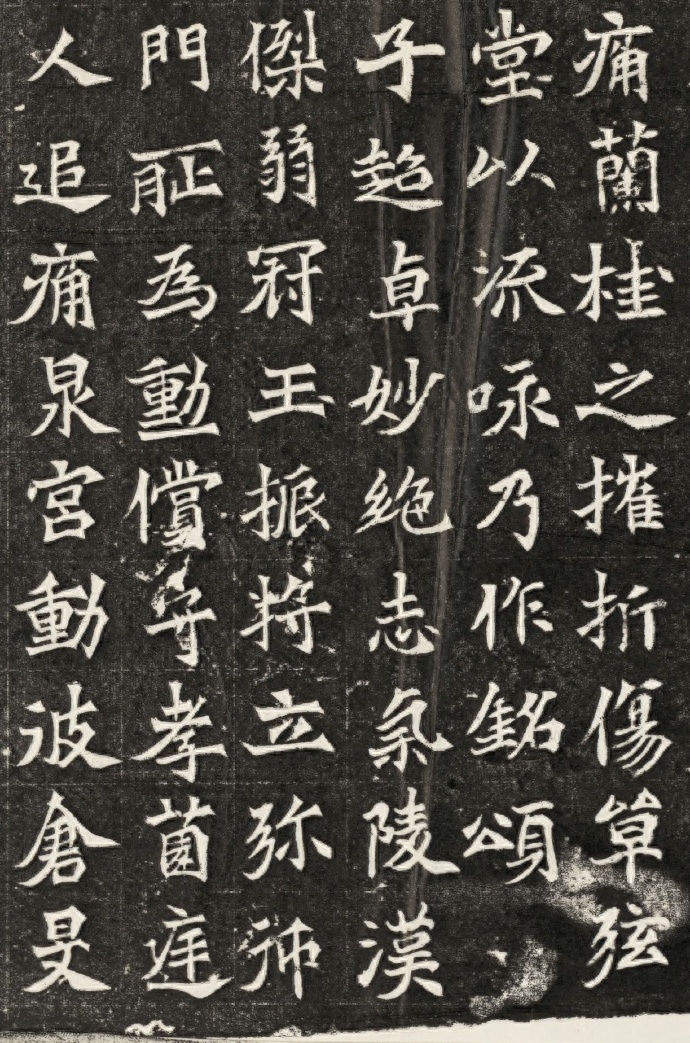 痛蘭桂之摧折傷草弦
堂以流咏乃作銘頌
子超卓妙絶志氣陵漢
傑弱冠王振將立弥
門為勳償守孝菌庭
人追痛泉宮動波倉旻